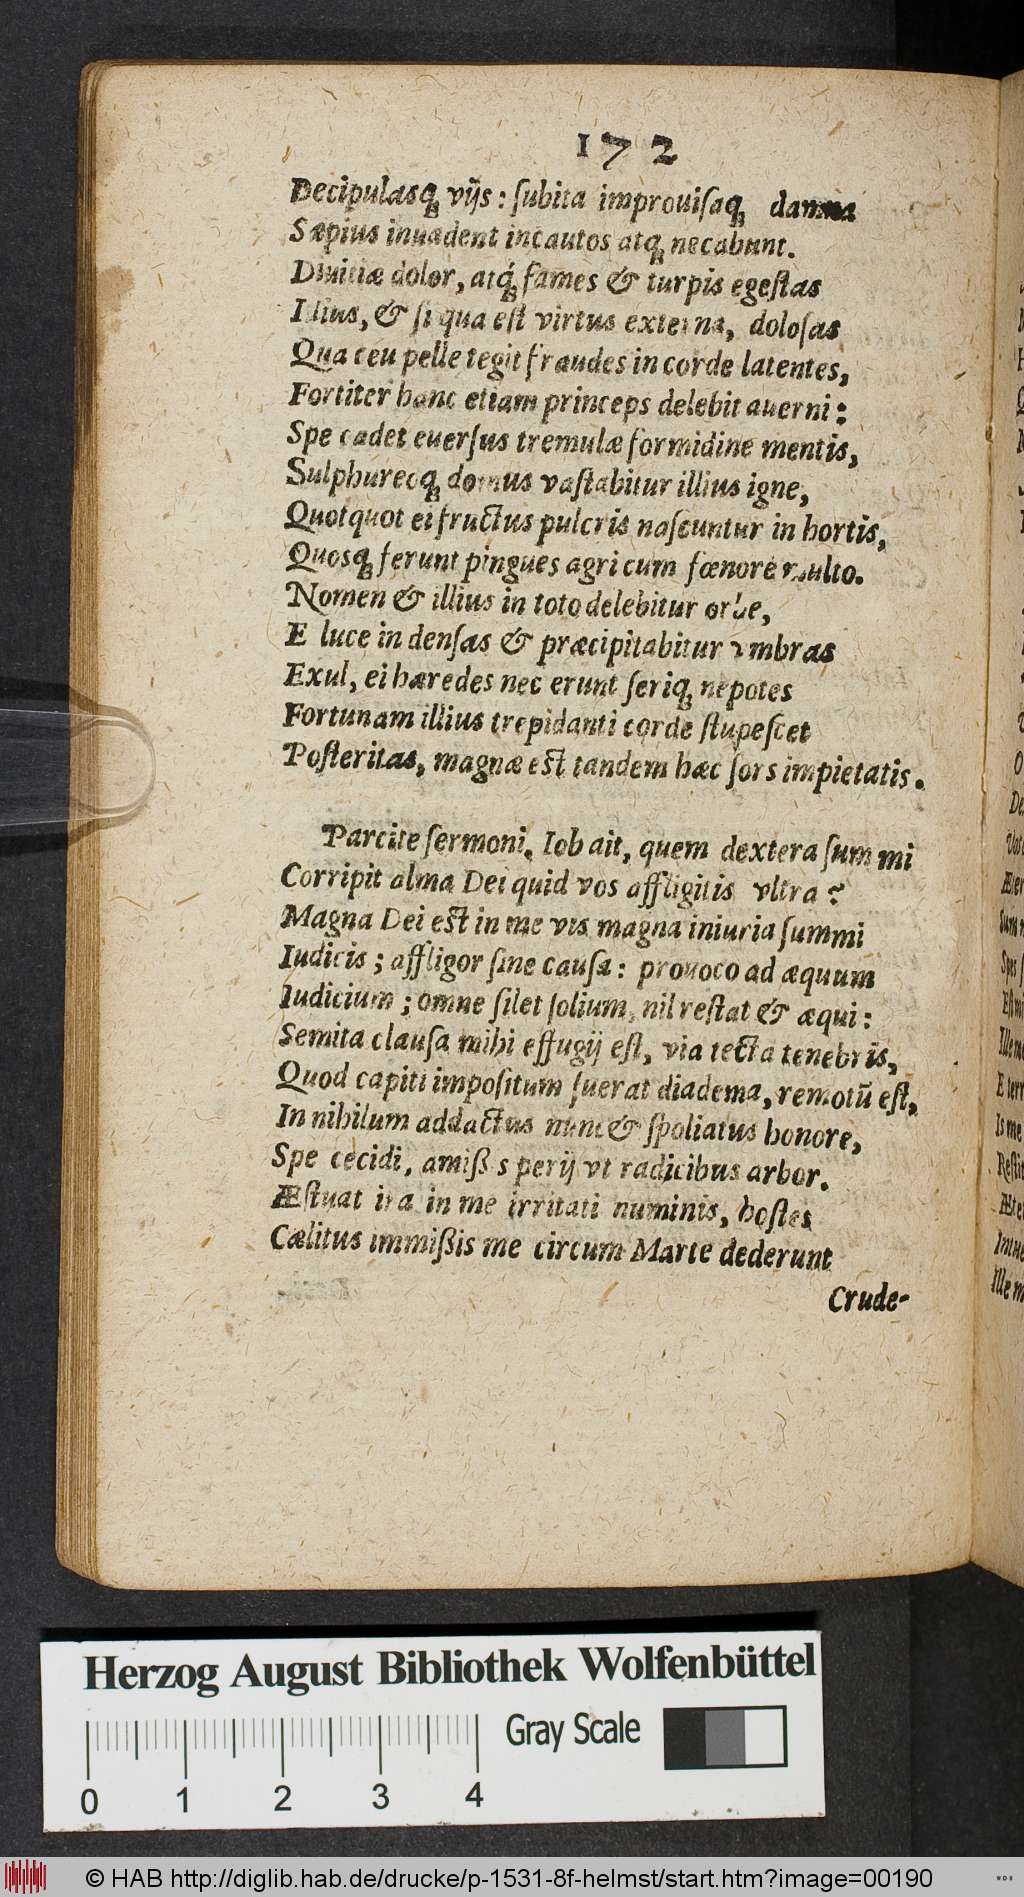 172
Decipulasq́; vijs: ſubita improuiſaq́; damna
Sæpius inuadent incautos atq́; necabunt.
Diuitiæ dolor, atq́; fames & turpis egeſtas
Illius, & ſi qua eſt virtus externa, doloſas
Qua ceu pelle tegit fraudes in corde latentes,
Fortiter hanc etiam princeps delebit auerni:
Spe cadet euerſus tremulæ formidine mentis,
Sulphureoq́; domus vaſtabitur illius igne,
Quotquot ei fructus pulcris naſcuntur in hortis,
Quosq́; ferunt pingues agri cum fœnore multo.
Nomen & illius in toto delebitur orbe,
E luce in denſas & præcipitabitur vmbras
Exul, ei hæredes nec erunt ſeriq́; nepotes
Fortunam illius trepidanti corde ſtupeſcet
Poſteritas, magnæ eſt tandem hæc ſors impietatis.
Parcite ſermoni, Iob ait, quem dextera ſummi
Corripit alma Dei quid vos affligitis vltra?
Magna Dei eſt in me vis magna iniuria ſummi
Iudicis; affligor ſine cauſa: prouoco ad æquum
Iudicium; omne ſilet ſolium, nil reſtat & æqui:
Semita clauſa mihi effugij eſt, via tecta tenebris,
Quod capiti impoſitum fuerat diadema, remotū eſt,
In nihilum addactus nunc & ſpoliatus honore,
Spe cecidi, amiſſis perij vt radicibus arbor.
Æſtuat ira in me irritati numinis, hoſtes
Cælitus immiſſis me circum Marte dederunt
Crude-
Herzog August Bibliothek Wolfenbüttel
Gray Scale
0 1 2 3 4
© HAB http://diglib.hab.de/drucke/p-1531-8f-helmst/start.htm?image=00190